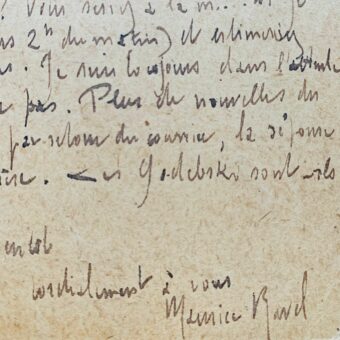 ? Vous serez à la
2h du matin) et
s. Je suis toujours dans l'attente
e pas. Plus de nouvelles du
par retour du courrier, la réponse
ière. Les Godebski sont-ils
entôt
cordialement à vous
Maurice Ravel